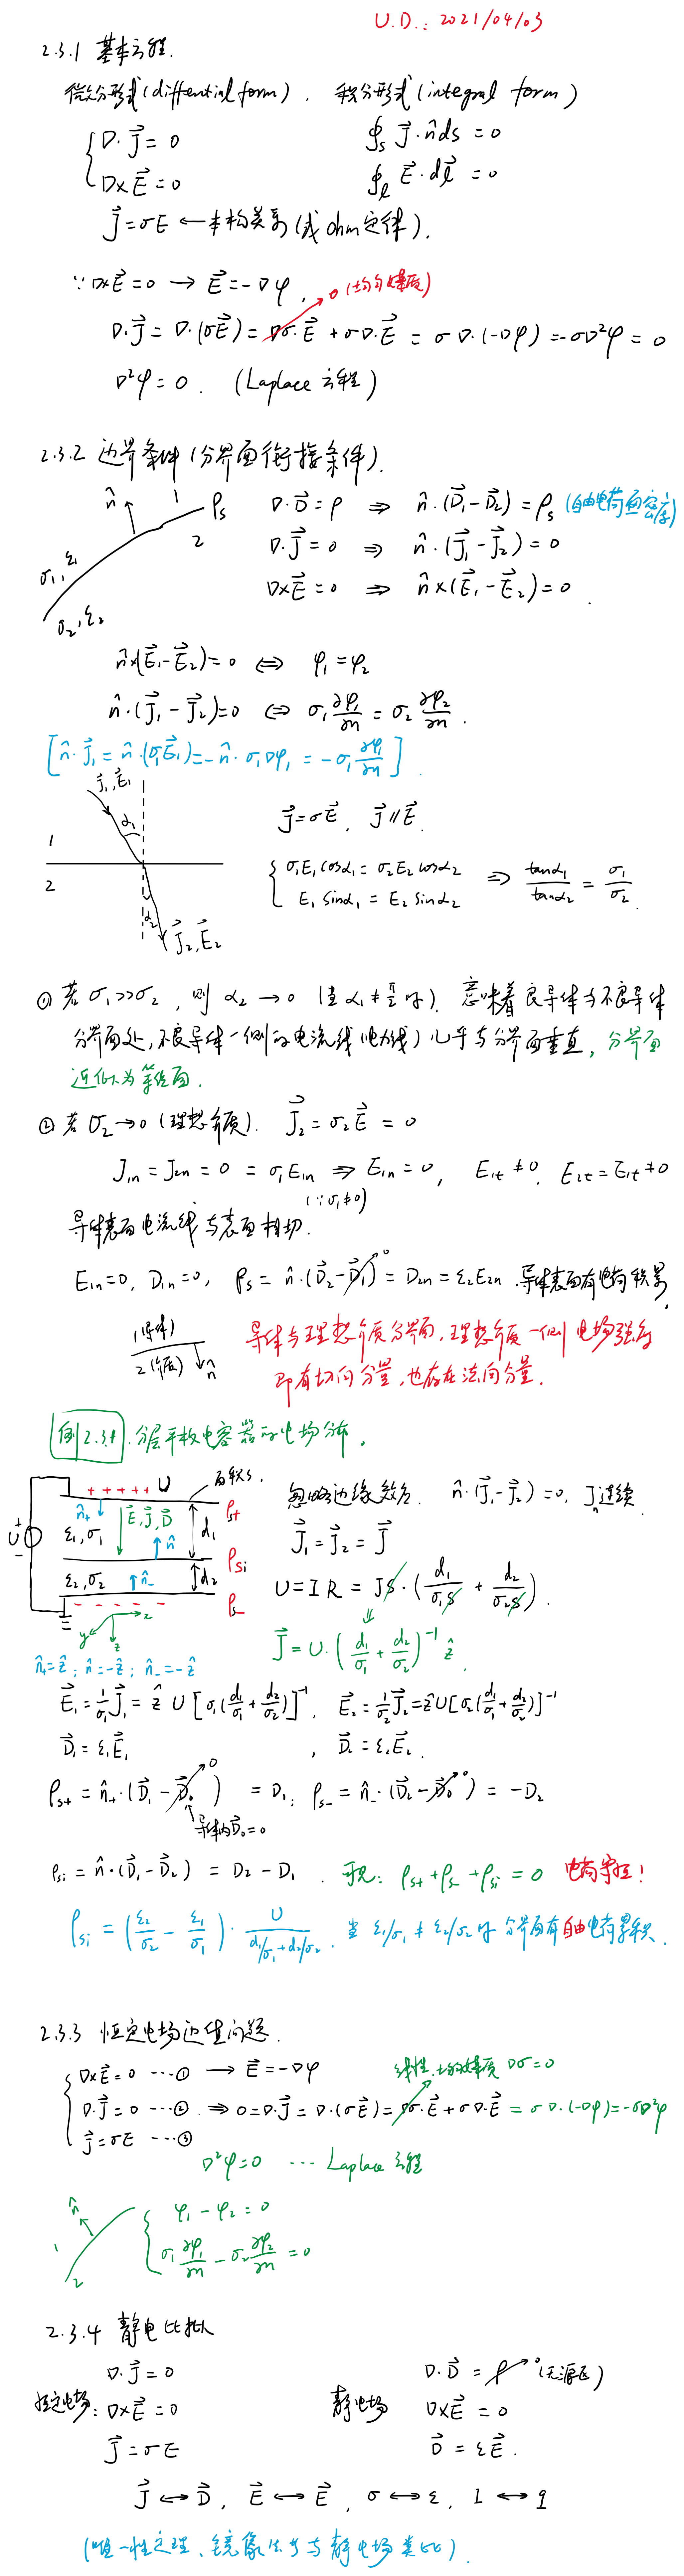 U.D.: 2021/04/03
2.3.1 基本方程.
微分形式(diffential form). 积分形式(integral form)
∇·J⃗ = 0 ∮ₛ J⃗·n̂ds = 0
∇×E⃗ = 0 ∮ₗ E⃗·dl⃗ = 0
J⃗ = σE ← 本构关系(或ohm定律).
∵ ∇×E⃗ = 0 → E⃗ = -∇φ. 0 (均匀媒质)
∇·J⃗ = ∇·(σE⃗) = ∇σ·E⃗ + σ∇·E⃗ = σ∇·(-∇φ) = -σ∇²φ = 0
∇²φ = 0. (Laplace 方程)
2.3.2 边界条件(分界面衔接条件).
n̂ 1 ρs ∇·D⃗ = ρ ⇒ n̂·(D⃗₁-D⃗₂) = ρs (自由电荷面密度)
2 ∇·J⃗ = 0 ⇒ n̂·(J⃗₁-J⃗₂) = 0
σ₁,ε₁ ∇×E⃗ = 0 ⇒ n̂×(E⃗₁-E⃗₂) = 0.
σ₂,ε₂
n̂×(E⃗₁-E⃗₂) = 0 ⇔ φ₁ = φ₂
n̂·(J⃗₁-J⃗₂) = 0 ⇔ σ₁ ∂φ₁/∂n = σ₂ ∂φ₂/∂n.
[n̂·J⃗₁ = n̂·(σ₁E⃗₁) = -n̂·σ₁∇φ₁ = -σ₁ ∂φ₁/∂n].
J⃗₁,E⃗₁
α₁ J⃗ = σE⃗, J⃗ // E⃗.
1
2 { σ₁E₁cosα₁ = σ₂E₂cosα₂ ⇒ tanα₁/tanα₂ = σ₁/σ₂.
E₁ sinα₁ = E₂ sinα₂
α₂
J⃗₂,E⃗₂
① 若σ₁>>σ₂, 则 α₂ → 0 (当 α₁ ≠ π/2 时). 意味着良导体与不良导体
分界面处, 不良导体一侧的电流线(电力线)几乎与分界面垂直, 分界面
近似为等位面.
② 若 σ₂→0 (理想介质). J⃗₂ = σ₂E⃗ = 0
J₁n = J₂n = 0 = σ₁E₁n ⇒ E₁n = 0, E₁t ≠ 0, E₂t = E₁t ≠ 0
(∵σ₁≠0)
导体表面电流线与表面相切.
E₁n=0, D₁n=0, ρs = n̂·(D⃗₂-D⃗₁) 0 = D₂n = ε₂E₂n. 导体表面有电荷积累.
1(导体) 导体与理想介质分界面, 理想介质一侧电场强度
2(介质) n̂ 即有切向分量, 也存在法向分量.
例 2.3.1. 分层平板电容器的电场分布.
+ + + + + U 面积S. 忽略边缘效应. n̂·(J⃗₁-J⃗₂) = 0, Jn连续.
n̂₊ E⃗,J⃗,D⃗ d₁ ρs+ J⃗₁ = J⃗₂ = J⃗
U + - ε₁,σ₁ n̂ ρsi
ε₂,σ₂ n̂₋ d₂ U = IR = JS·(d₁/σ₁S + d₂/σ₂S).
- - - - - - ρs-
y x z J⃗ = U·(d₁/σ₁ + d₂/σ₂)⁻¹ ẑ.
n̂₊=ẑ; n̂=-ẑ; n̂₋=-ẑ
E⃗₁ = 1/σ₁ J⃗₁ = ẑ U [σ₁(d₁/σ₁+d₂/σ₂)]⁻¹, E⃗₂ = 1/σ₂ J⃗₂ = ẑU[σ₂(d₁/σ₁+d₂/σ₂)]⁻¹
D⃗₁ = ε₁E⃗₁, D⃗₂ = ε₂E⃗₂.
ρs+ = n̂₊·(D⃗₁-D⃗₀) 0 = D₁; ρs- = n̂₋·(D⃗₂-D⃗₀) 0 = -D₂
导体内D⃗₀=0
ρsi = n̂·(D⃗₁-D⃗₂) = D₂-D₁. 可见: ρs+ + ρs- + ρsi = 0 电荷守恒!
ρsi = (ε₂/σ₂ - ε₁/σ₁)· U/(d₁/σ₁+d₂/σ₂). 当 ε₁/σ₁ ≠ ε₂/σ₂ 时 分界面有自由电荷累积.
2.3.3 恒定电场边值问题.
∇×E⃗ = 0 ···① → E⃗ = -∇φ 线性.均匀媒质 ∇σ=0
∇·J⃗ = 0 ···② ⇒ 0=∇·J⃗ = ∇·(σE⃗) = ∇σ·E⃗ + σ∇·E⃗ = σ∇·(-∇φ) = -σ∇²φ
J⃗ = σE ···③
∇²φ=0 ··· Laplace 方程
n̂ φ₁ - φ₂ = 0
1
2 σ₁ ∂φ₁/∂n - σ₂ ∂φ₂/∂n = 0
2.3.4 静电比拟
∇·J⃗ = 0 ∇·D⃗ = ρ 0 (无源区)
恒定电场: ∇×E⃗ = 0 静电场 ∇×E⃗ = 0
J⃗ = σE D⃗ = εE⃗.
J⃗ ↔ D⃗, E⃗ ↔ E⃗, σ ↔ ε, I ↔ q
(唯一性定理、镜像法等与静电场类比).